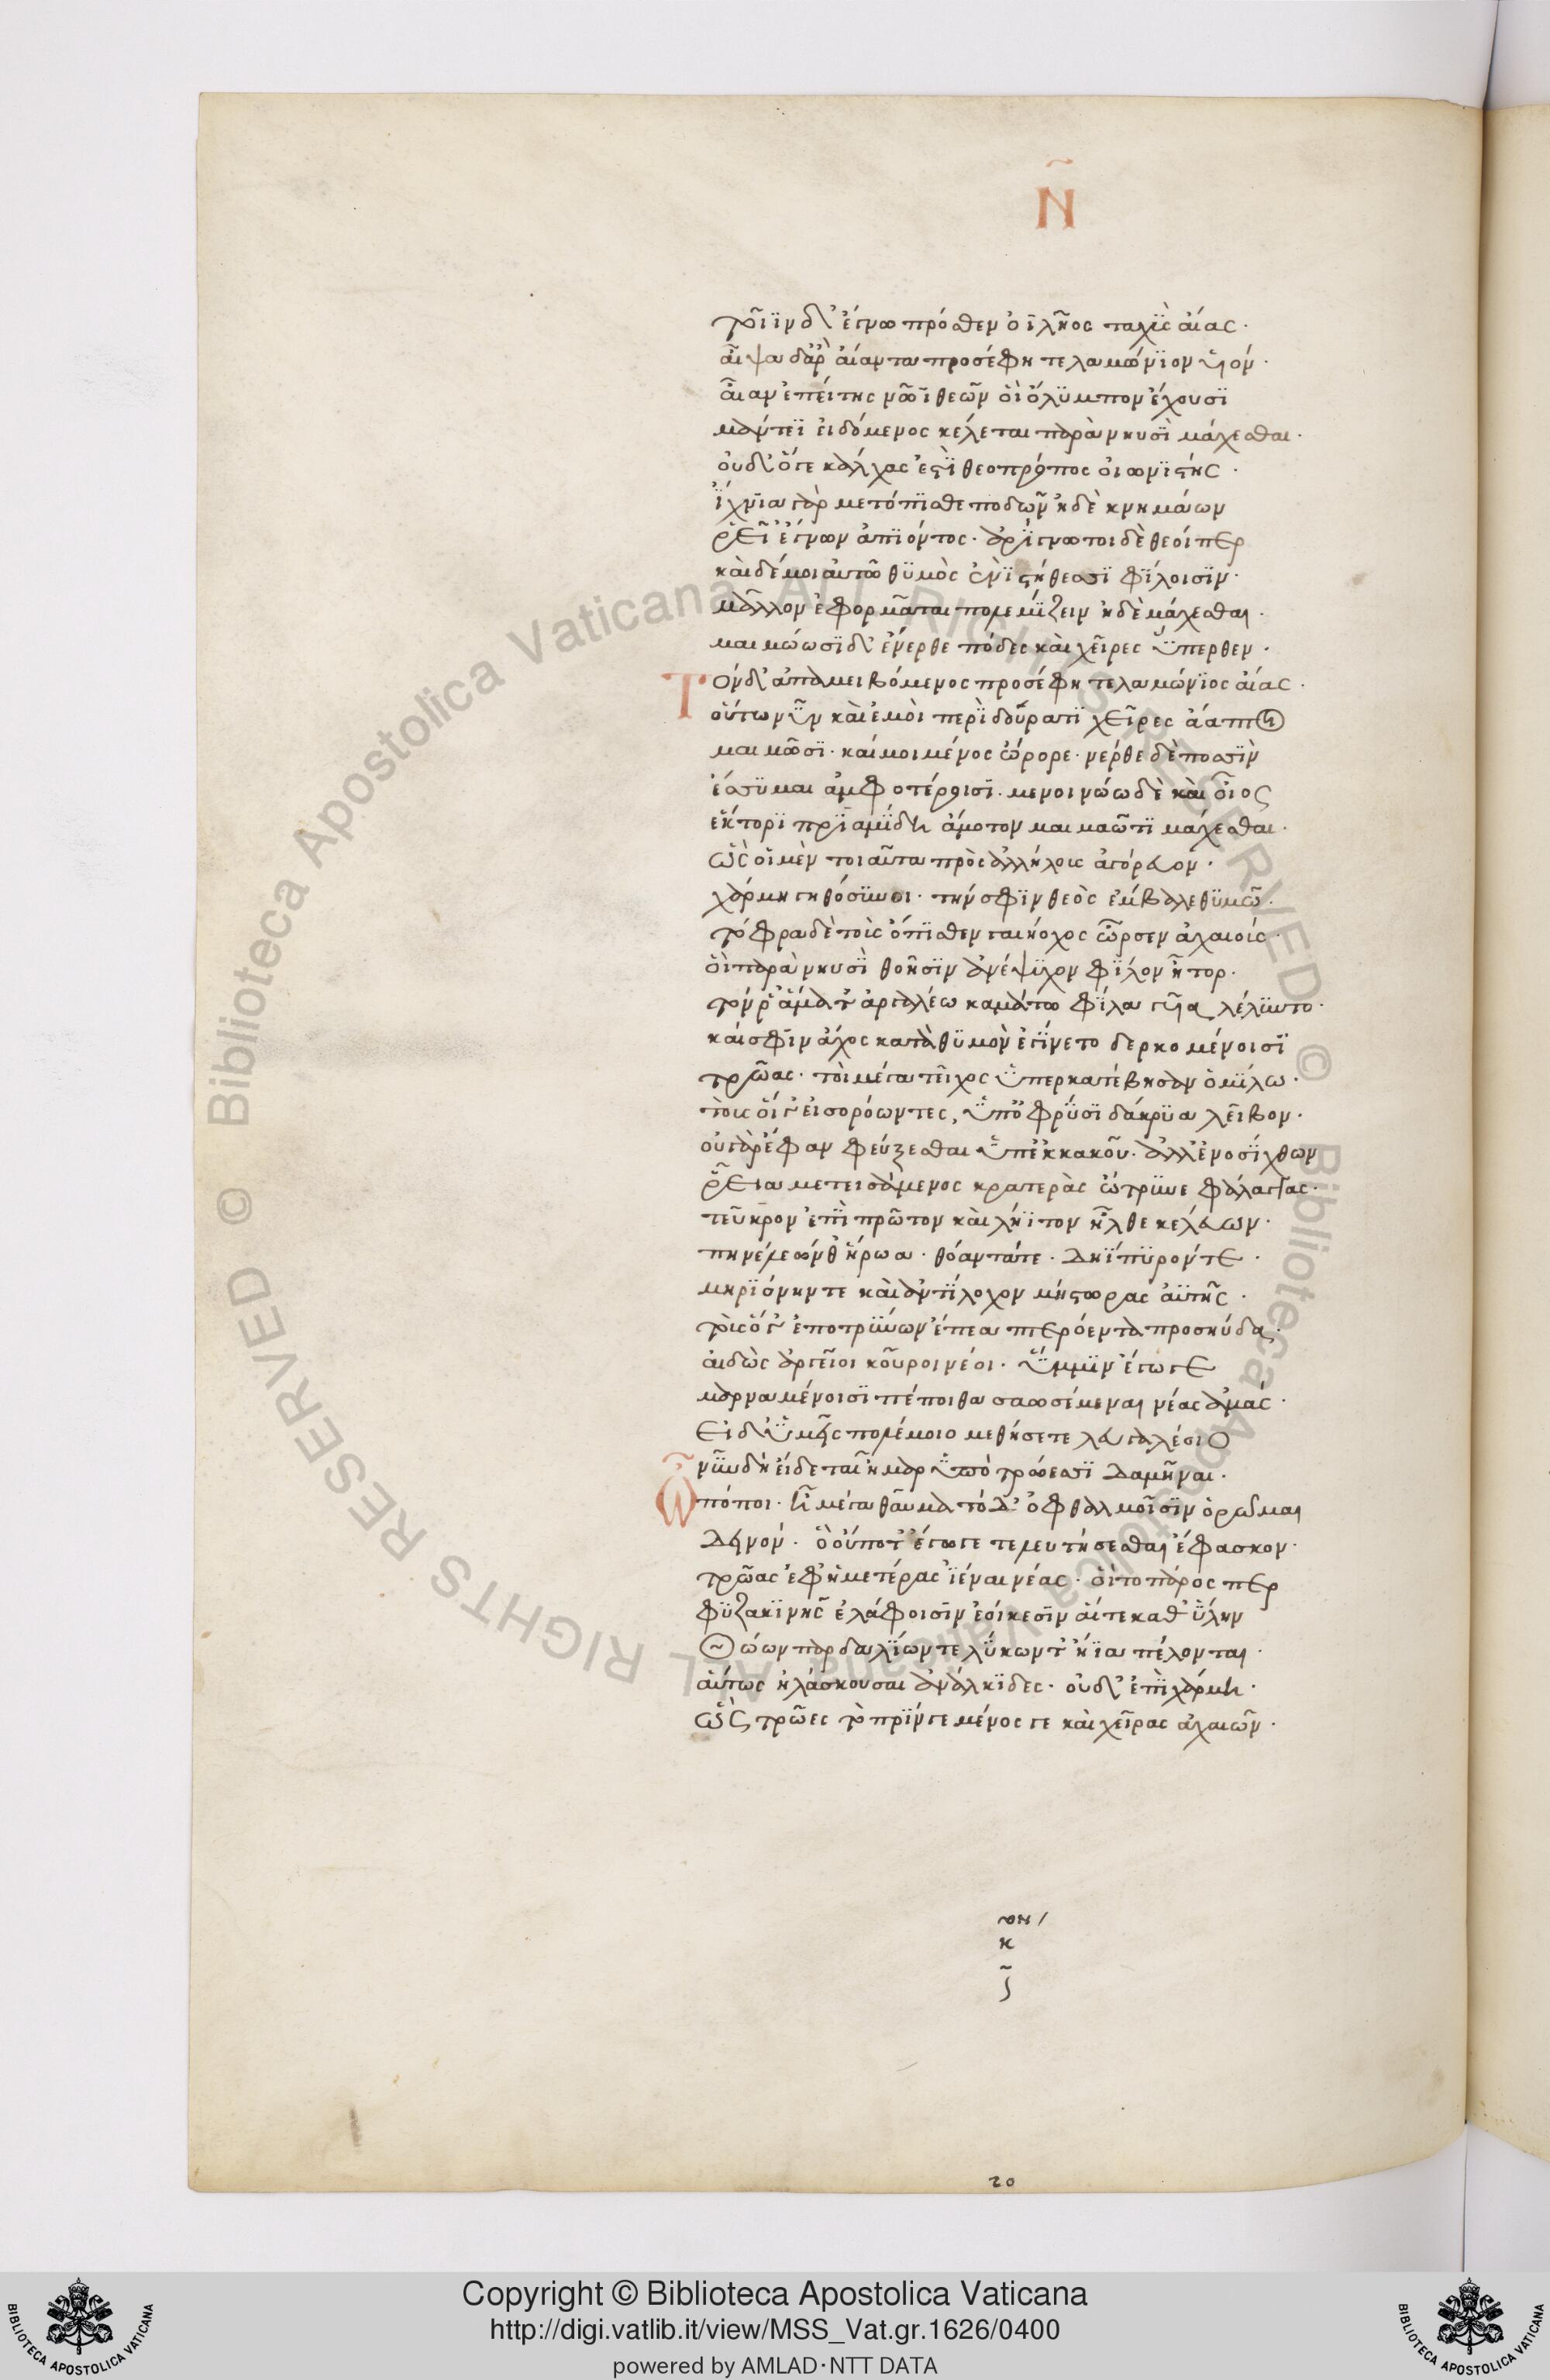 Ν
τοῖϊν δ' ἔγνω πρόσθεν ὀϊλῆος ταχὺς αἴας·
αἶψα δ' ἄρ' αἴαντα προσέφη τελαμώνϊον υἱόν·
αἶαν ἐπείτης νῶϊ θεῶν ὃι ὄλϋμπον ἔχουσϊ
μάντεϊ εἰδόμενος κέλεται παρὰ νηυσῒ μάχεσθαι·
οὐδ' ὅγε κάλχας ἐστῒ θεοπρόπος οἰωνϊστής·
ἴχνϊα γὰρ μετόπϊσθε ποδῶν ἠδὲ κνημάων
ῥεῖ' ἔγνων ἀπϊόντος· ἀρΐγνωτοι δὲ θεοί περ
καὶ δέ μοι αὐτῶ θϋμὸς ἐνῒ στήθεσσϊ φΐλοισϊν·
μᾶλλον ἐφορμᾶται πολεμΐζειν ἠδὲ μάχεσθαι·
μαιμώωσϊ δ' ἔνερθε πόδες καὶ χεῖρες ὕπερθεν·
Τὸν δ' ἀπαμειβόμενος προσέφη τελαμώνϊος αἴας·
οὕτω νῦν καὶ ἐμοὶ περῒ δούρατϊ χεῖρες ἄαπτοι
μαιμῶσϊ· καί μοι μένος ὤρορε· νέρθε δὲ ποσσῒν
ἔσσϋμαι ἀμφοτέροισϊ· μενοινώω δὲ καὶ οἶος
ἕκτορϊ πρϊαμΐδη ἄμοτον μεμαῶτϊ μάχεσθαι·
ὣς οἱ μὲν τοιαῦτα πρὸς ἀλλήλους ἀγόρευον·
χάρμη γηθόσϋνοι· τήν σφϊν θεὸς ἔμβαλε θϋμῶ·
τόφρα δὲ τοὺς ὄπϊσθεν γαιήοχος ὦρσεν ἀχαιούς·
ὃι παρὰ νηυσῒ θοῇσϊν ἀνέψϋχον φΐλον ἦτορ·
τῶν ῥ' ἅμα τ' ἀργαλέω καμάτω φΐλα γυῖα λέλϋντο·
καί σφϊν ἄχος κατὰ θϋμὸν ἐγΐνετο δερκομένοισϊ
τρῶας· τοὶ μέγα τεῖχος ὑπερκατέβησαν ὁμΐλω·
τοὺς οἵ γ' εἰσορόωντες, ὑπ' ὀφρύσϊ δάκρϋα λεῖβον·
οὐ γὰρ ἔφαν φεύξεσθαι ὑπ' ἐκ κακοῦ· ἀλλ' ἐνοσΐχθων
ῥεῖα μετεισάμενος κρατερὰς ὤτρϋνε φάλαγγας·
τεῦκρον ἐπῒ πρῶτον καὶ λήϊτον ἦλθε κελεύων·
πηνέλεών θ' ἥρωα· θόαντά τε· δηΐπϋρόν τε·
μηρϊόνην τε καὶ ἀντΐλοχον μήστωρας ἀϋτῆς·
τοὺς ὅ γ' ἐποτρϋνων ἔπεα πτερόεντα προσηύδα·
αἰδὼς ἀργεῖοι κοῦροι νέοι· ὔμμϊν ἔγωγε
μαρναμένοισϊ πέποιθα σαωσέμεναι νέας ἀμάς·
Εἰ δ' ὑμεῖς πολέμοιο μεθήσετε λευγαλέοιο
νῦν δὴ εἴδεται ἦμαρ ὑπὸ τρώεσσϊ δαμῆναι·
Ὦ πόποι· ἦ μέγα θαῦμα τόδ' ὀφθαλμοῖσϊν ὁρῶμαι
δεινόν· ὃ οὔποτ' ἔγωγε τελευτήσεσθαι ἔφασκον·
τρῶας ἐφ' ἡμετέρας ἰέναι νέας· ὃι τοπάρος περ
φϋζακϊνῇς ἐλάφοισϊν ἐοίκεσϊν αἵ τε καθ' ὕλην
θώων παρδαλΐων τε λΰκων τ' ἤϊα πέλονται·
αὔτως ἠλάσκουσαι ἀνάλκϊδες· οὐδ' ἐπῒ χάρμη·
ὣς τρῶες τὸ πρΐν γε μένος γε καὶ χεῖρας ἀχαιῶν·
κ
20
© Biblioteca Apostolica Vaticana ALL RIGHTS RESERVED © Biblioteca Apostolica Vaticana ALL RIGHTS RESERVED
BIBLIOTECA APOSTOLICA VATICANA
Copyright © Biblioteca Apostolica Vaticana
http://digi.vatlib.it/view/MSS_Vat.gr.1626/0400
powered by AMLAD·NTT DATA
BIBLIOTECA APOSTOLICA VATICANA